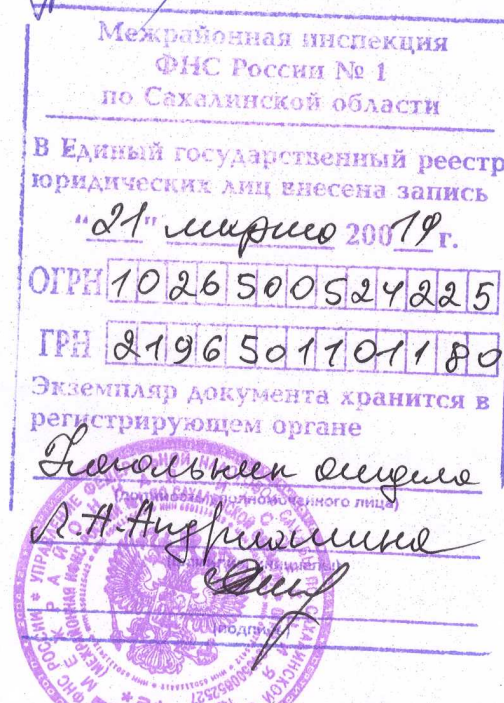 Межрайонная инспекция
ФНС России № 1
по Сахалинской области
В Единый государственный реестр
юридических лиц внесена запись
"21" марта 20019 г.
ОГРН 1026500524225
ГРН 2196501101180
Экземпляр документа хранится в
регистрирующем органе
Начальник отдела
(должность уполномоченного лица)
Л.А. Андрюшина
(подпись)